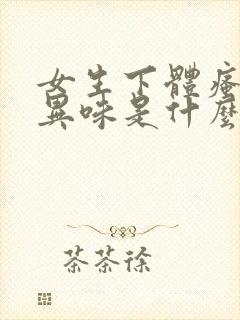 女生下體癢
異味是什麼
茶茶徐